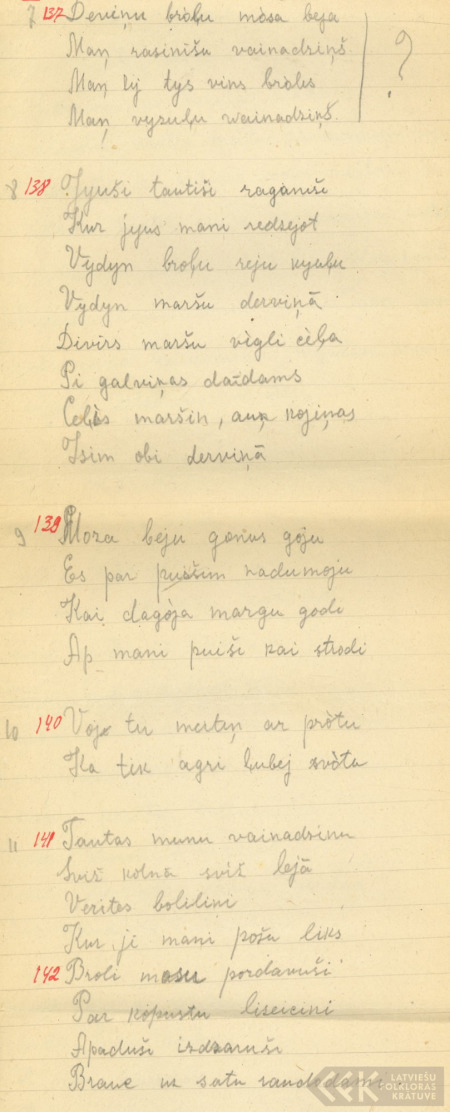 7 137 Deviņu bròļu mòsa beja
Maņ rasinišu vainadziņš
Maņ ļỳ tys vins bròlis
Maņ vyzuļu wainadziņš
?
8 138 Jyuši tautiši raganiši
Kur jyus mani redzejot
Vydyn broļu reju kyuļu
Vydyn maršu derviņā
Divirs maršu vìgli cèļa
Pi galviņas daždams
Celìs maršiņ, aun kojiņas
Isim obi derviņā
9 139 Moza beju gonus goju
Es par puišim nadumoju
Kai dagòja margu godi
Ap mani puiši kai strodi
10 140 Voj tu meitiņ ar pròtu
Ka tik agri ļubej svòta
11 141 Tautas munu vainadziņu
Sviž kolnā sviž lejā
Verites bolilini
Kur ji mani pošu liks
142 Broli mosu pordavuši
Par kòpustu liseicini
Apaduši izdzaruši
Brauc uz satu raudodami
LATVIEŠU
FOLKLORAS
KRATUVE